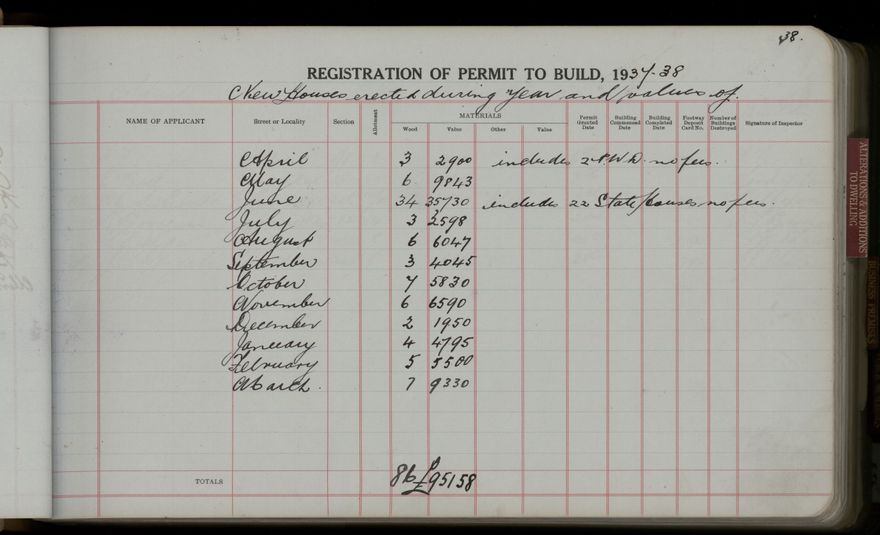 38.
REGISTRATION OF PERMIT TO BUILD, 1937-38
New Houses erected during Year and values of.
NAME OF APPLICANT Street or Locality Section Allotment MATERIALS Wood Value Other Value Permit Granted Date Building Commenced Date Building Completed Date Footway Deposit Card No. Number of Buildings Destroyed Signature of Inspector
April 3 2900 includes 2 P.W.D. no fees.
May 6 9843
June 34 35730 includes 22 State Houses, no fees.
July 3 2598
August 6 6047
September 3 4045
October 7 5830
November 6 6590
December 2 1950
January 4 4795
February 5 5500
March. 7 9330
TOTALS 86 £95158
ALTERATIONS & ADDITIONS TO DWELLING
BUSINESS PREMISES